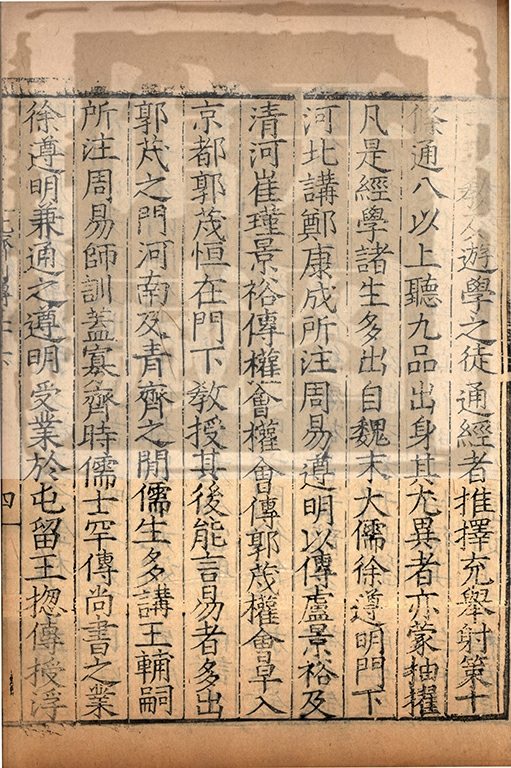 教及遊學之徒通經者推擇充舉射策十
條通八以上聽九品出身其尤異者亦蒙抽擢
凡是經學諸生多出自魏末大儒徐遵明門下
河北講鄭康成所注周易遵明以傳盧景裕及
清河崔瑾景裕傳權會權會傳郭茂權會早入
京都郭茂恒在門下教授其後能言易者多出
郭茂之門河南及青齊之閒儒生多講王輔嗣
所注周易師訓蓋寡齊時儒士罕傳尚書之業
徐遵明兼通之遵明受業於屯留王揔傳授浮
四